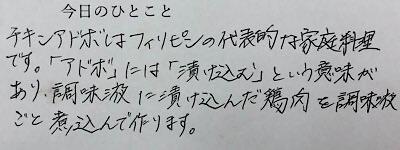 今日のひとこと
チキンアドボはフィリピンの代表的な家庭料理
です。「アドボ」には「漬け込む」という意味が
あり、調味液に漬け込んだ鶏肉を調味液
ごと煮込んで作ります。